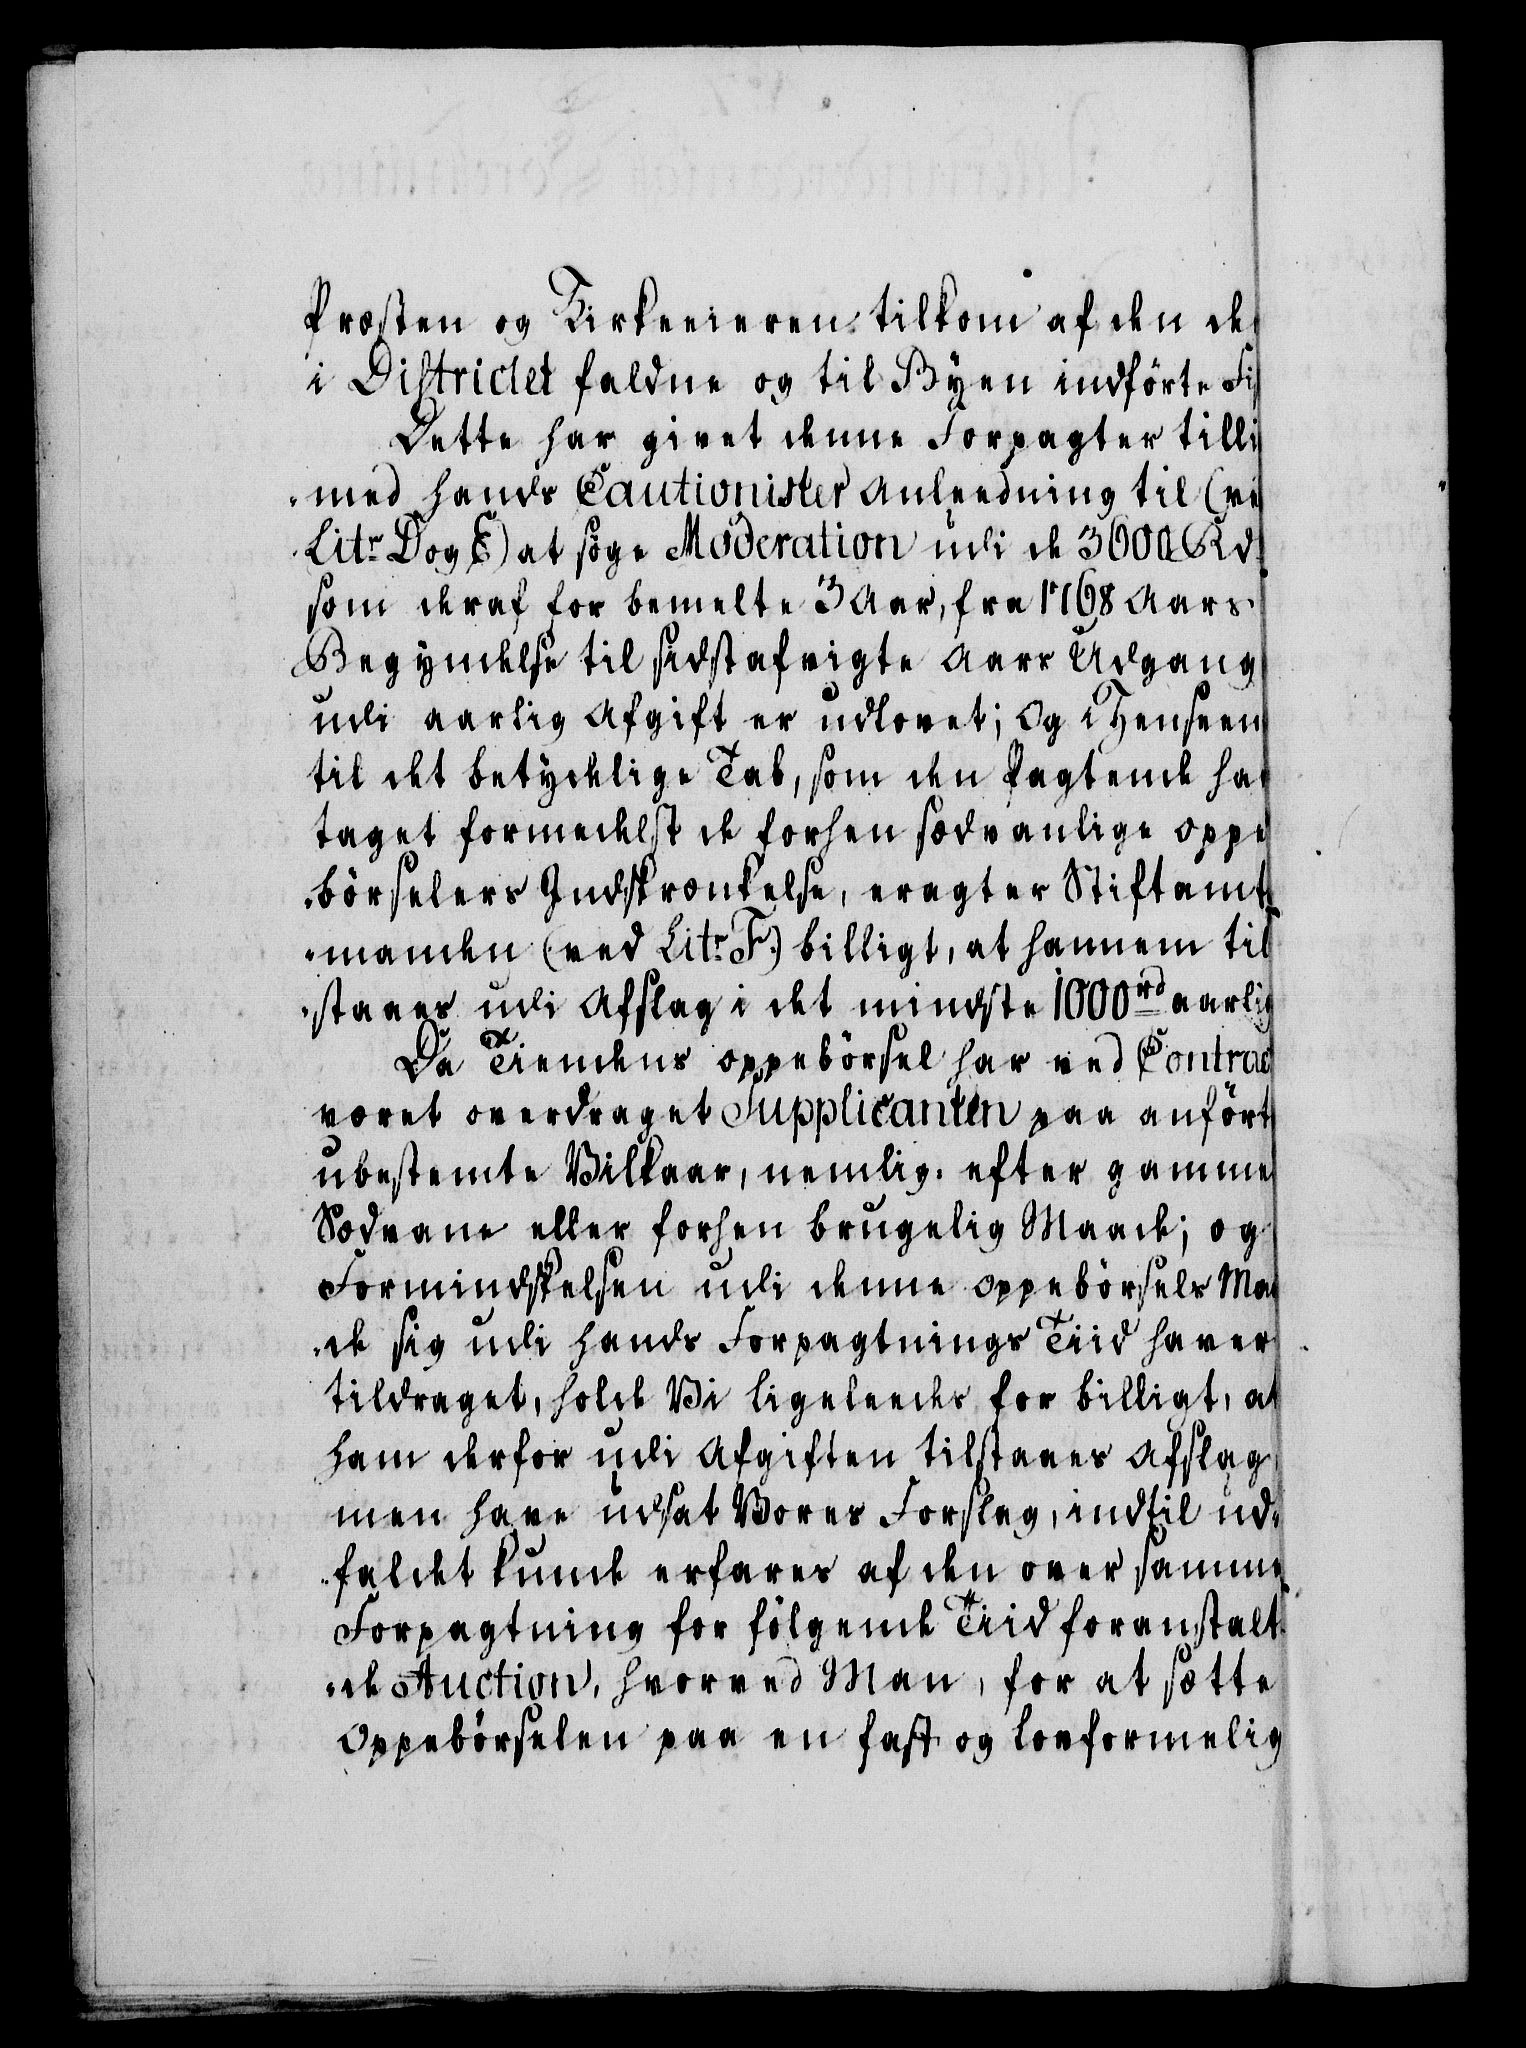 Præsten og Kirkeeieren tilkom af den de
i Districtet faldne og til Byen indförte Fi
Dette har givet denne Forpagter tilli
med hands Cautionister Anleedning til (ve
Litr. D og E) at søge Moderation udi de 3600 Rd
som deraf for bemelte 3 Aar, fra 1768 Aars
Begyndelse til sidstafvigte Aars Udgang
udi aarlig Afgift er udlovet; Og i Henseen
til det betydelige Tab, som den Pagtende har
taget formedelst de forhen sædvanlige Oppe
börselers Indskrænkelse, eragter Stiftamt
manden (ved Litr. F.) billigt, at hannem til
staaes udi Afslag i det mindste 1000 rd aarlig
Da Tiendens Oppebörsel har ved Contrac
været overdraget Supplicanten paa anfört
ubestemte Vilkaar, nemlig. efter gamme
Sædvane eller forhen brugelig Maade; og
Formindskelsen udi denne Oppebörsels Ma
de sig udi hands Forpagtnings Tiid haver
tildraget, holde Vi ligeleedes for billigt, at
ham derfor udi Afgiften tilstaaes Afslag
men have udsat Vores Forslag, indtil ud-
faldet kunde erfares af den over samme
Forpagtning for fölgende Tiid foranstalt
de Auction, hvorved Man, for at sætte
Oppebörselen paa en fast og lovformelig